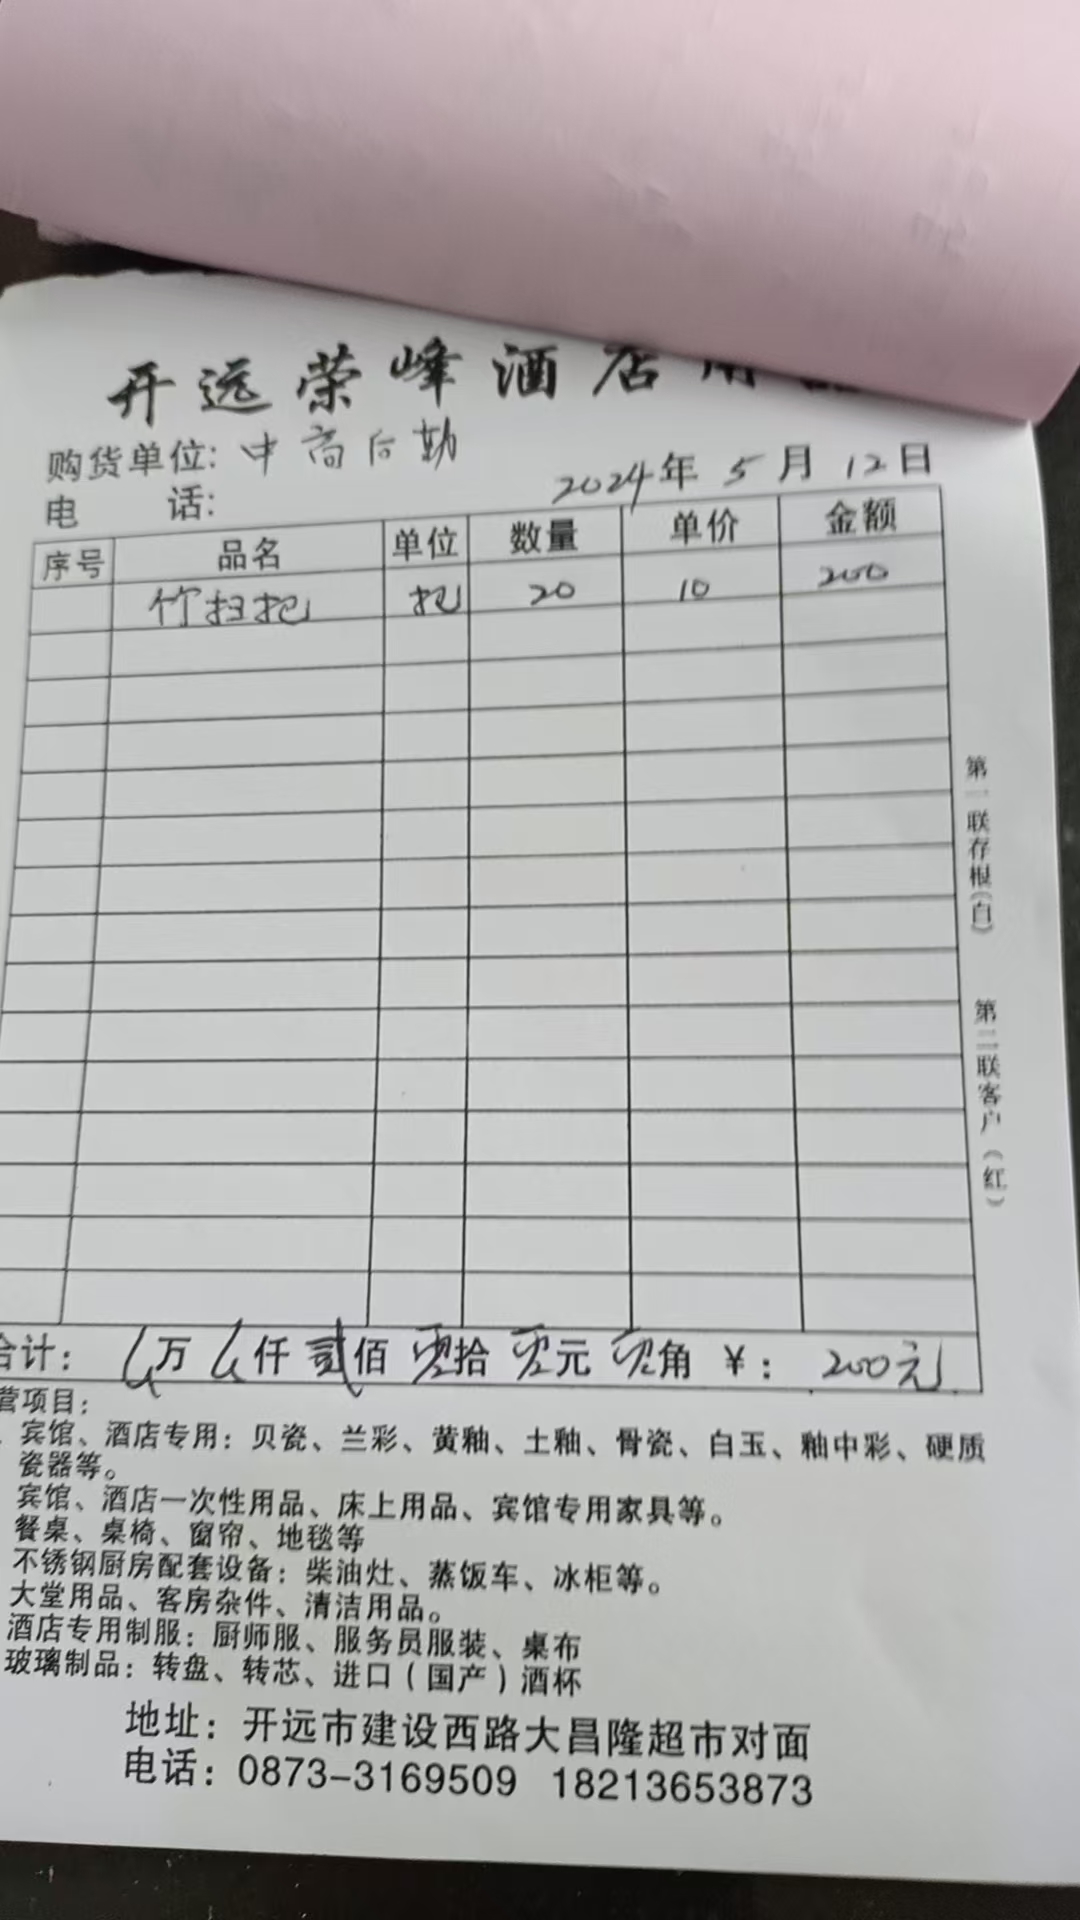 开远荣峰酒店用品
购货单位: 中高后勤
电 话:
2024年 5月 12日
序号 品名 单位 数量 单价 金额
竹扫把 把 20 10 200
第一联存根(白) 第二联客户(红)
合计: 万 仟 贰佰 零拾 零元 零角 ¥: 200元
营项目:
宾馆、酒店专用: 贝瓷、兰彩、黄釉、土釉、骨瓷、白玉、釉中彩、硬质
瓷器等。
宾馆、酒店一次性用品、床上用品、宾馆专用家具等。
餐桌、桌椅、窗帘、地毯等
不锈钢厨房配套设备: 柴油灶、蒸饭车、冰柜等。
大堂用品、客房杂件、清洁用品。
酒店专用制服: 厨师服、服务员服装、桌布
玻璃制品: 转盘、转芯、进口(国产)酒杯
地址: 开远市建设西路大昌隆超市对面
电话: 0873-3169509 18213653873